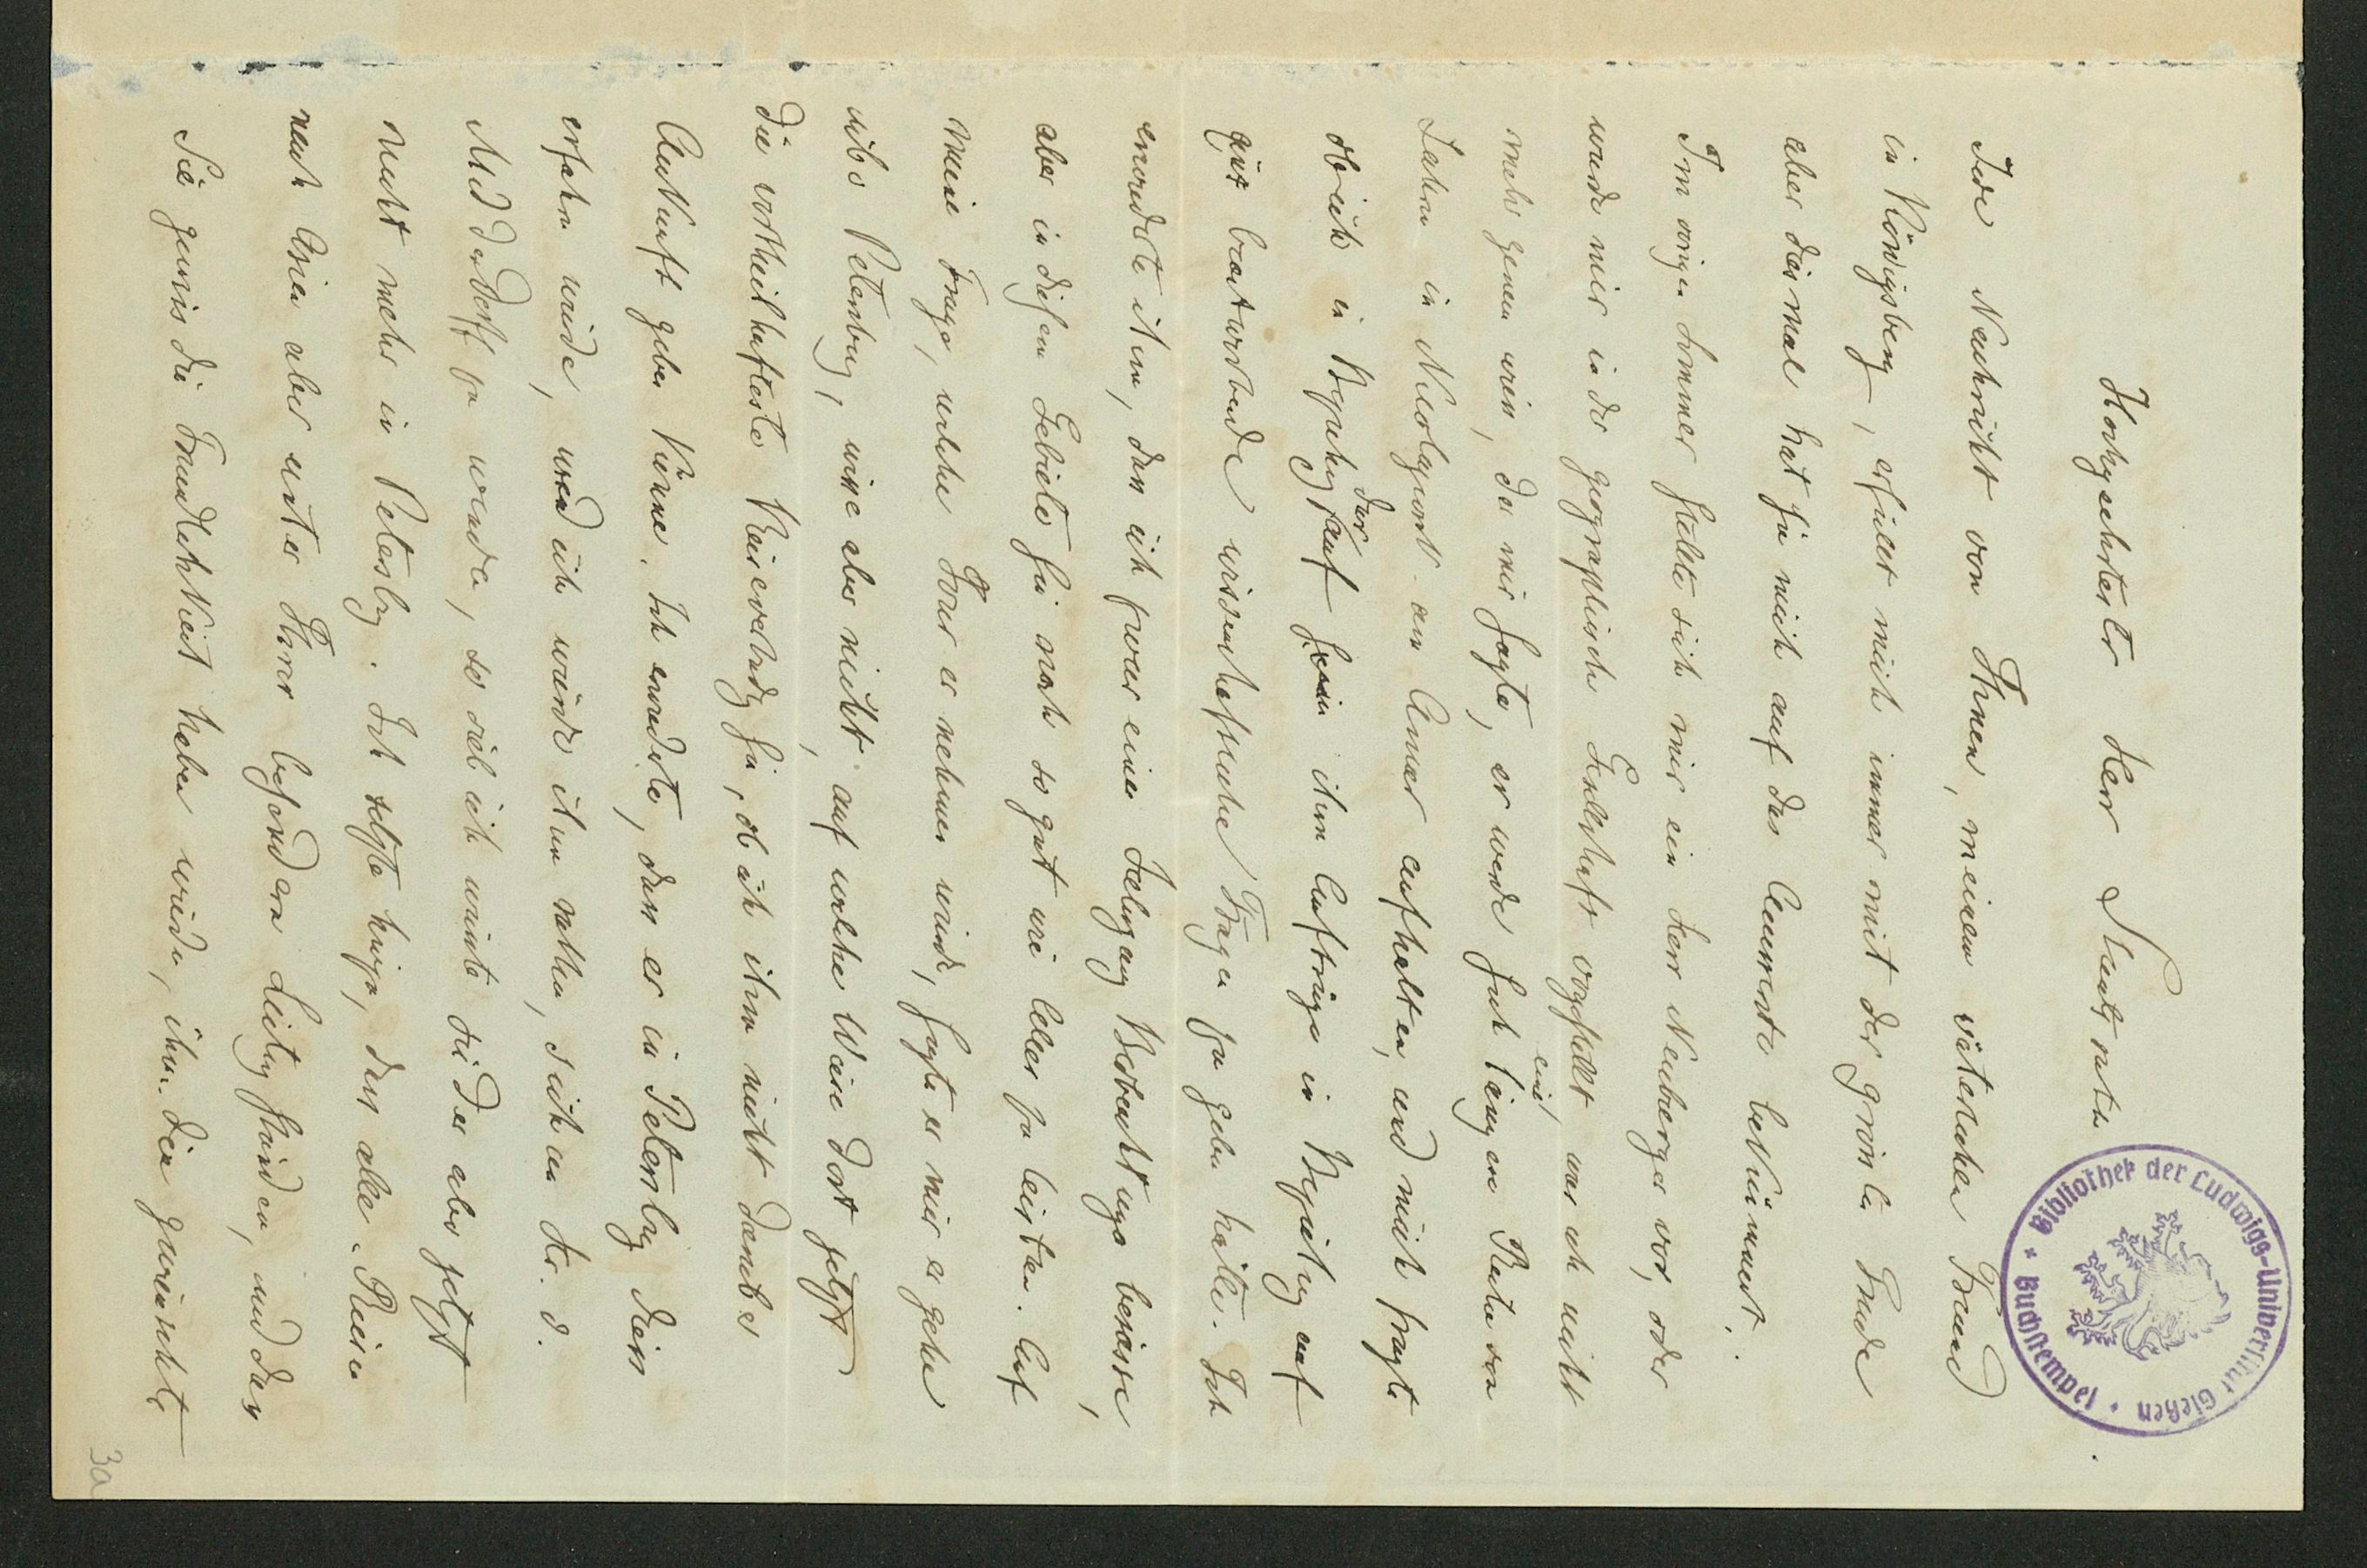 Hochgeehrtester Herr Staatsrath
Jede Nachricht von Ihnen, meinem väterlichen Freund
in Königsberg, erfüllt mich immer mit der grössten Freude
aber diesmal hat sie mich auf das Äusserste bekümmert.
Im vorigen Sommer stellte sich mir ein Herr Neuberger vor, oder
wurde mir in der geographischen Gesellschaft vorgestellt was ich nicht
mehr genau weiss, der mir sagte, er werde sich eine längere Reihe von
Jahren in Nicolajewsk am Amur aufhalten, und mich fragte
ob ich in Beziehung auf ihm Aufträge in Beziehung auf
dort zu beantwortende wissenschaftliche Fragen zu geben hätte. Ich
erwiderte ihm, dass ich zwar einen Beobachtungs besässe,
aber in diesem Gebiete sie noch so gut wie alles zu leisten. Auf
meine Frage, welche Tour er nehmen würde, sagte er mir er gehe
über Petersburg, wisse aber nicht, auf welche Weise dort jetzt
die vortheilhafteste Reiseverbindung sei, ob ich ihm nicht darüber
Auskunft geben könne. Ich erwiderte, dass er in Petersburg dies
erfahren würde, und ich würde ihm rathen, sich an Hr. v.
Middendorff zu wenden, so viel ich wüsste sei der aber jetzt
nicht mehr in Petersburg. Ich setzte hinzu, dass alle Reisen
nach Asien aber unter Ihrer besonderen Leitung ständen, und dass
Sie gewiss die Freundlichkeit haben würden, ihm den gewünschten
Bibliothek der Ludwigs-Universität Gießen
Buchstempel
3a